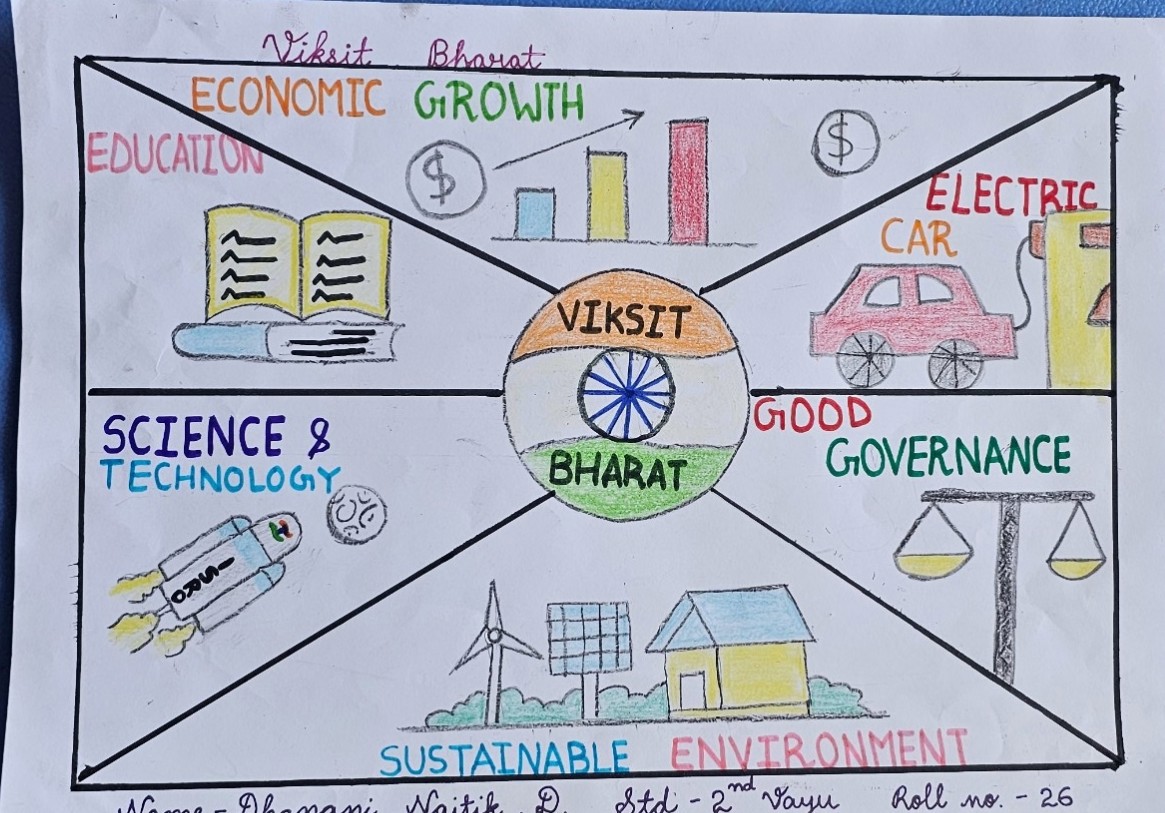 Viksit Bharat
ECONOMIC GROWTH
EDUCATION
$
$
ELECTRIC
CAR
VIKSIT
BHARAT
SCIENCE &
TECHNOLOGY
ISRO
GOOD
GOVERNANCE
SUSTAINABLE ENVIRONMENT
Name - Dhanani Naitik D. Std - 2nd Vayu Roll no. - 26